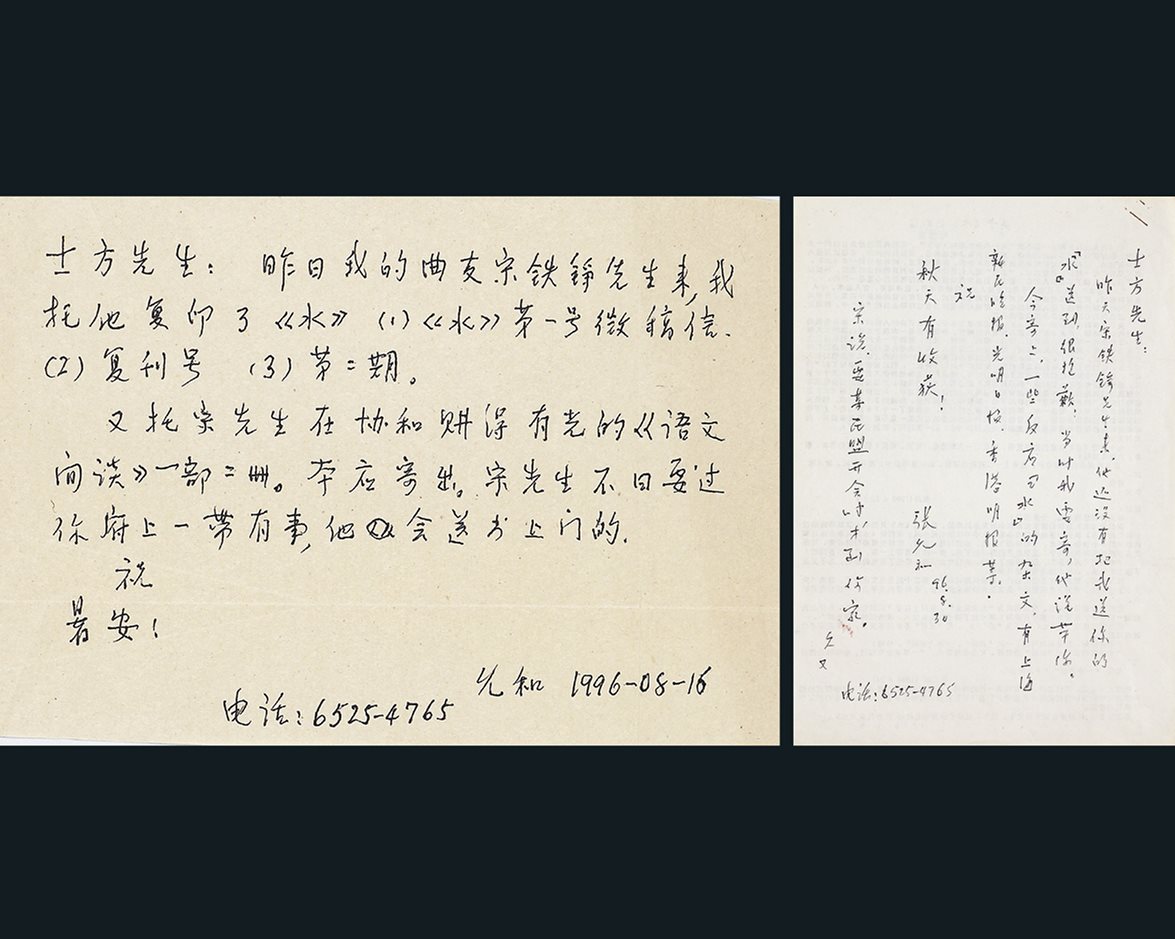 士方先生： 昨日我的曲友宋铁铮先生来，我
托他复印了《水》 (1)《水》第一号微稿信.
(2) 复刊号 (3) 第二期。
又托宋先生在协和购得有光的《语文
闲谈》一部二册。本应寄出。宋先生不日要过
你府上一带有事，他会送书上门的.
祝
暑安！
允和 1996-08-16
电话：6525-4765
士方先生：
昨天宋铁铮先生来，他还没有把我送你的
《水》送到，很抱歉。当时我要寄，他说带你。
今寄上，一些反应《水》的杂文，有上海
新民晚报、光明日报、香港明报等。
祝
秋天有收获！
张允和
96.8.30
宋说，要等民盟开会时，才到你家。
允又
电话：6525-4765